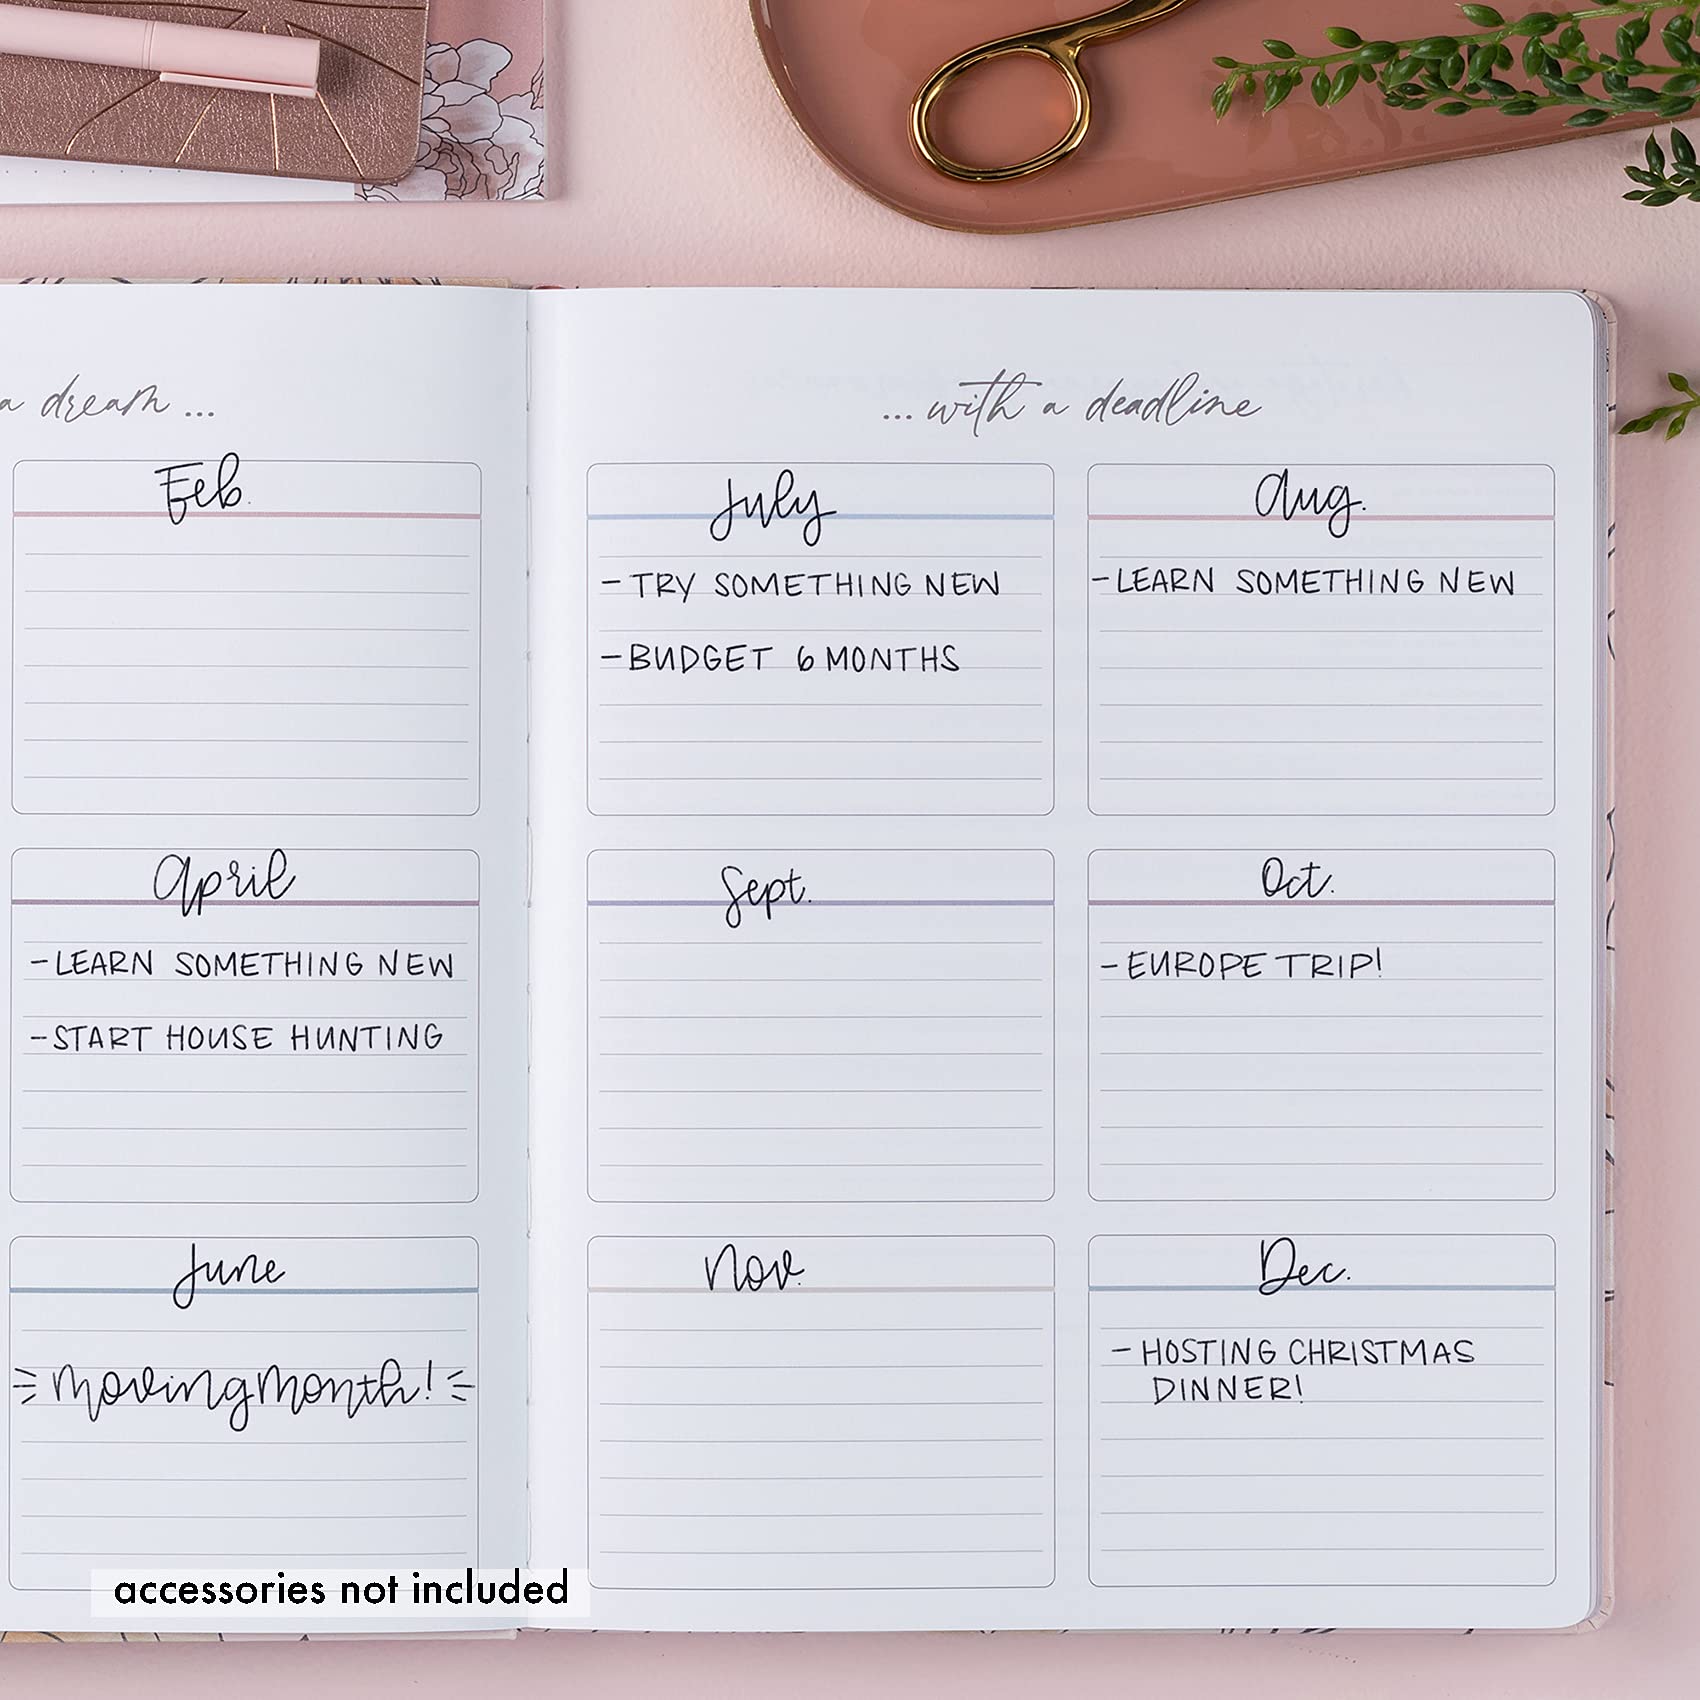 a dream ...
Feb.
April
- LEARN SOMETHING NEW
- START HOUSE HUNTING
June
moving month!
... with a deadline
July
- TRY SOMETHING NEW
- BUDGET 6 MONTHS
Aug.
- LEARN SOMETHING NEW
Sept.
Oct.
- EUROPE TRIP!
Nov.
Dec.
- HOSTING CHRISTMAS
DINNER!
accessories not included